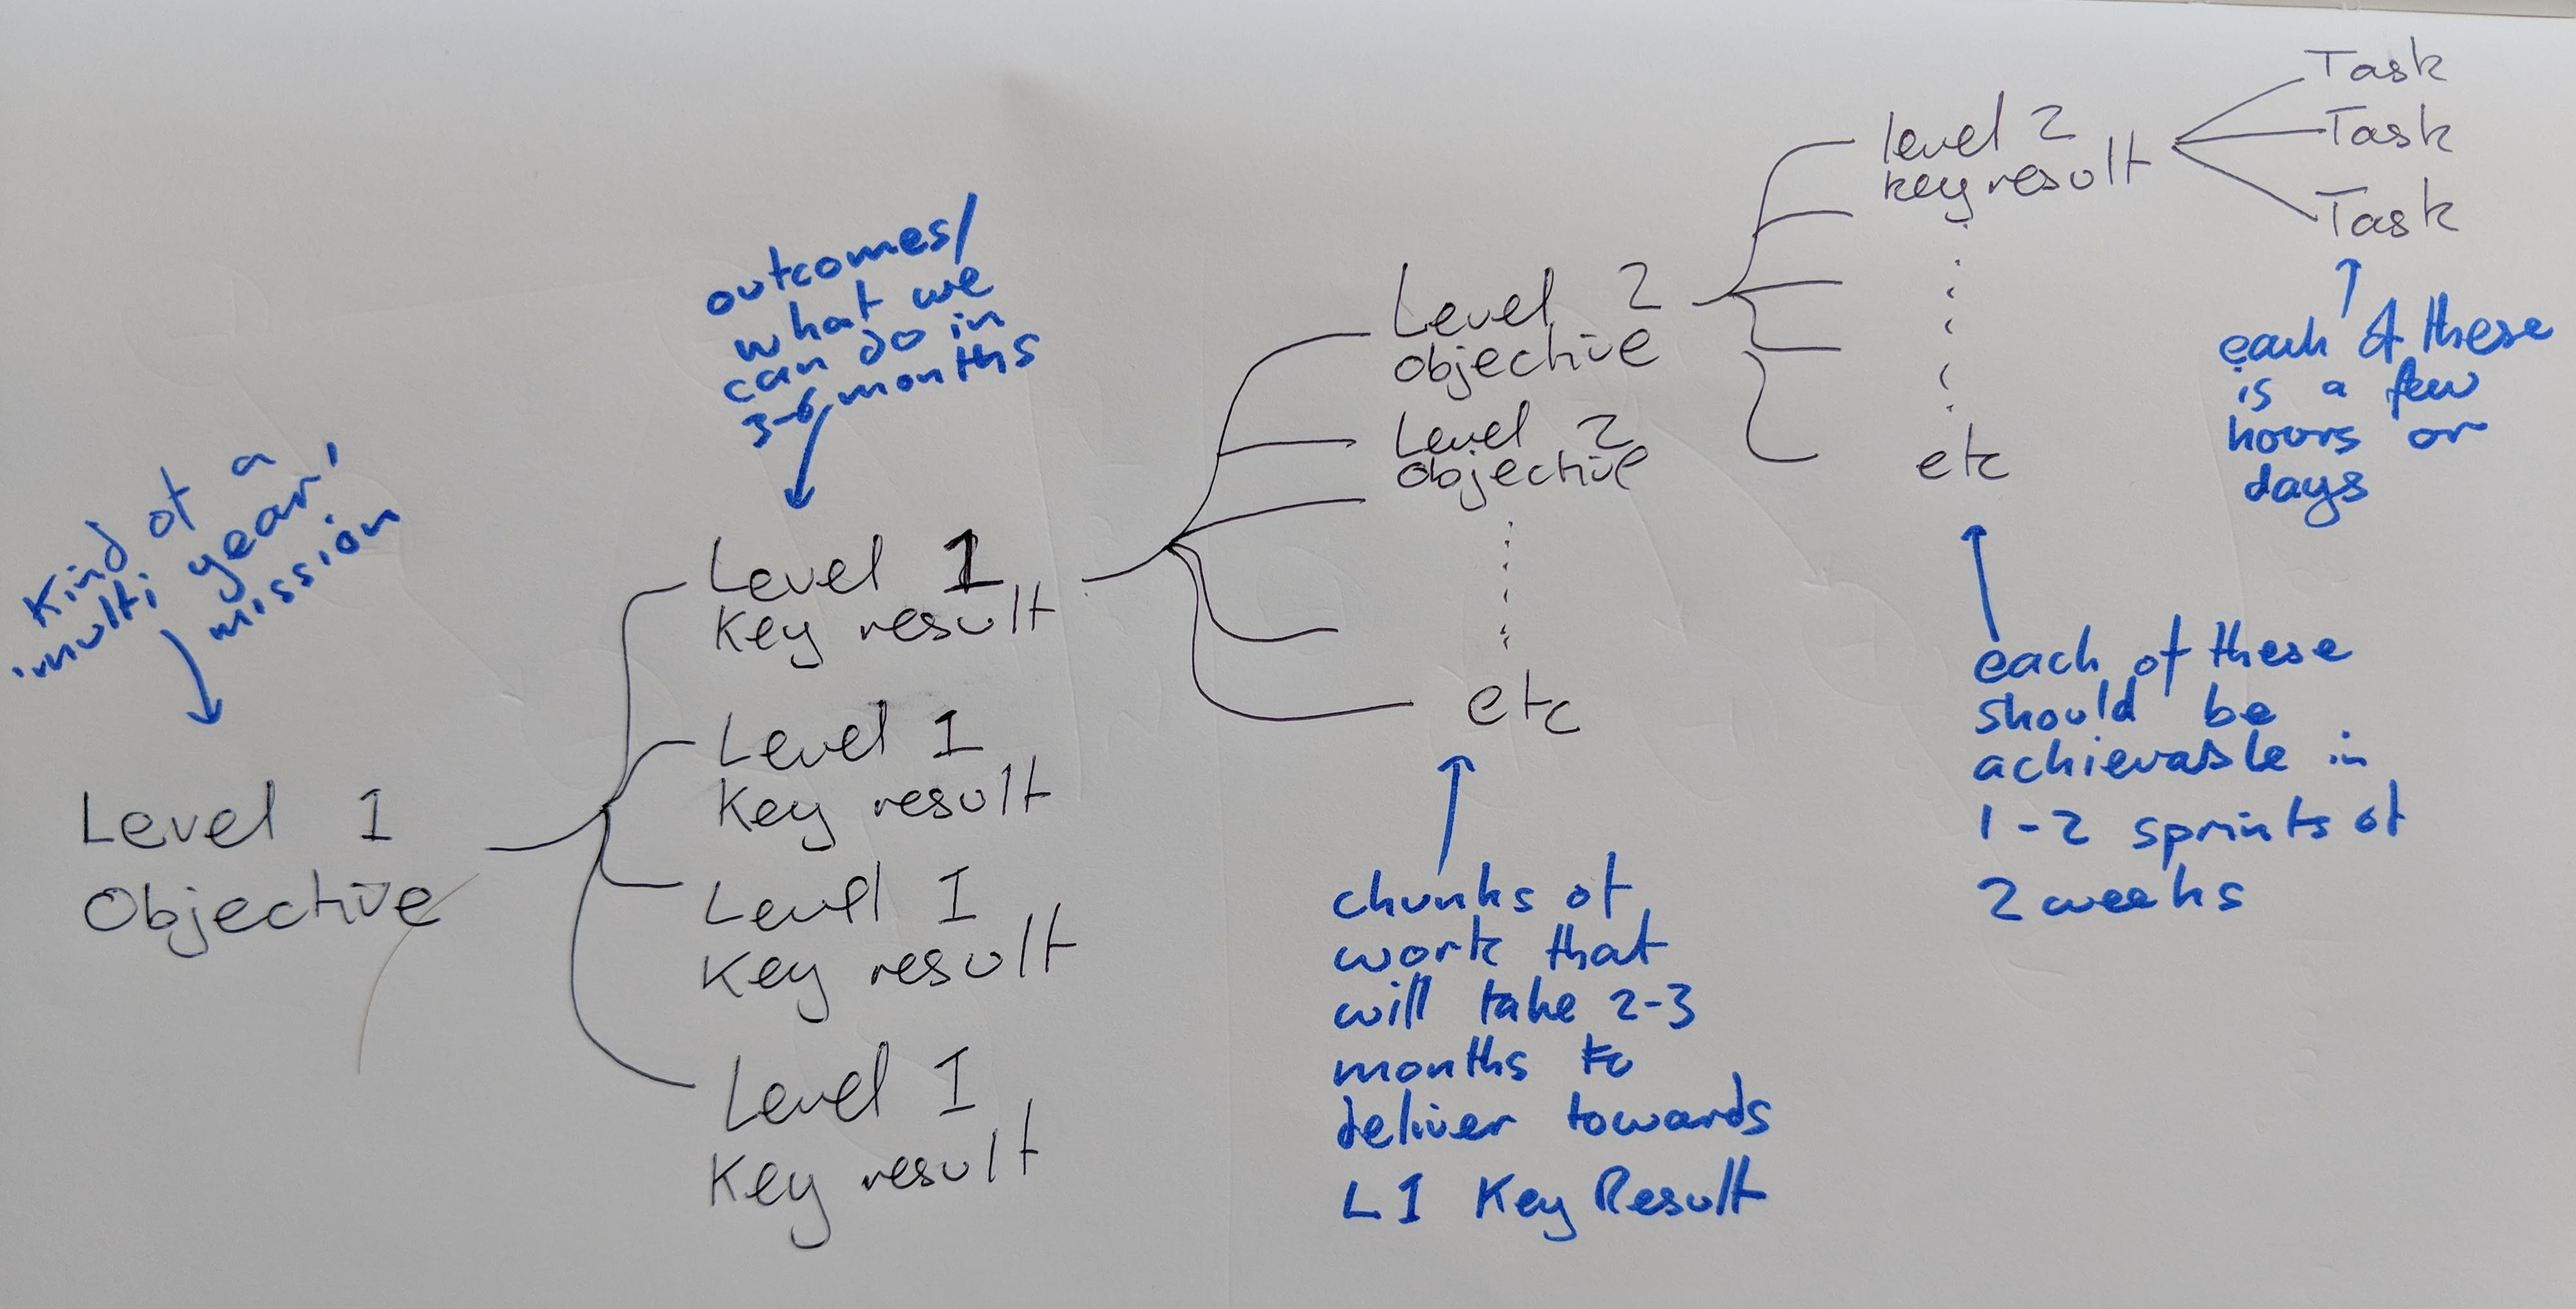 Kind of a
'multi year'
mission
Level 1
Objective
outcomes/
what we
can do in
3-6 months
Level 1
Key result
Level 1
Key result
Level 1
Key result
Level 1
Key result
Level 2
objective
Level 2
objective
etc
chunks of
work that
will take 2-3
months to
deliver towards
L1 Key Result
level 2
key result
etc
each of these
should be
achievable in
1-2 sprints of
2 weeks
Task
Task
Task
each of these
is a few
hours or
days